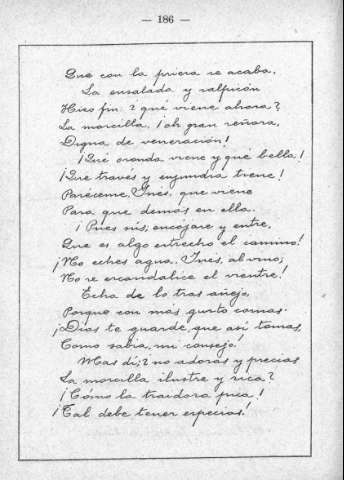 — 186 —
Que con la priesa se acaba.
La ensalada y salpicón
Hizo fin: ¿qué viene ahora?
La morcilla, ¡oh gran señora,
Digna de veneración!
¡Qué oronda viene y qué bella!
¡Que través y enjundia tiene!
Paréceme, Inés, que viene
Para que demos en ella.
¡Pues sús, encójase y entre,
Que es algo estrecho el camino!
¡No eches agua, Inés, al vino;
No se escandalice el vientre!
Echa de lo tras añejo,
Porque con más gusto comas.
¡Dios te guarde, que así tomas,
Como sabia, mi consejo!
Mas dí; ¿no adoras y precias
La morcilla ilustre y rica?
¡Cómo la traidora pica!
¡Tal debe tener especias!